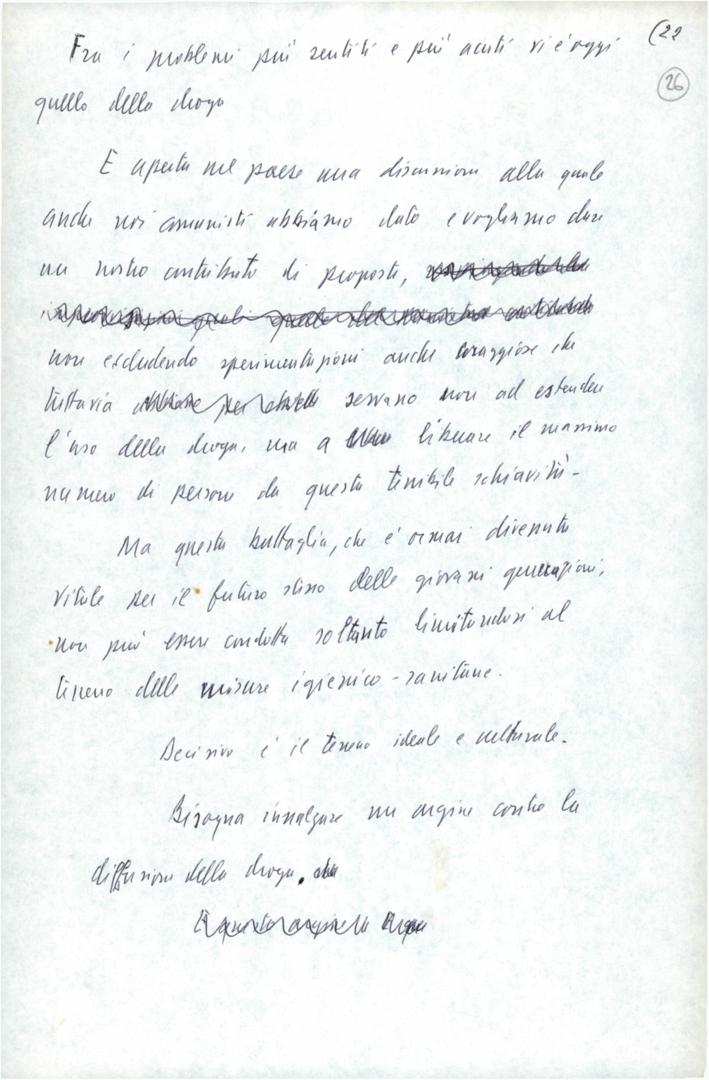 (22
26
Fra i problemi più sentiti e più acuti vi è oggi
quello della droga
È aperta nel paese una discussione alla quale
anche noi comunisti abbiamo dato e vogliamo dare
un nostro contributo di proposte,
non escludendo sperimentazioni anche coraggiose che
tuttavia servano non ad estendere
l'uso della droga, ma a liberare il massimo
numero di persone da questa terribile schiavitù-
Ma questa battaglia, che è ormai divenuta
vitale per il futuro stesso delle giovani generazioni,
non può essere condotta soltanto limitandosi al
terreno delle misure igienico-sanitarie.
Decisivo è il terreno ideale e culturale.
Bisogna innalzare un argine contro la
diffusione della droga.